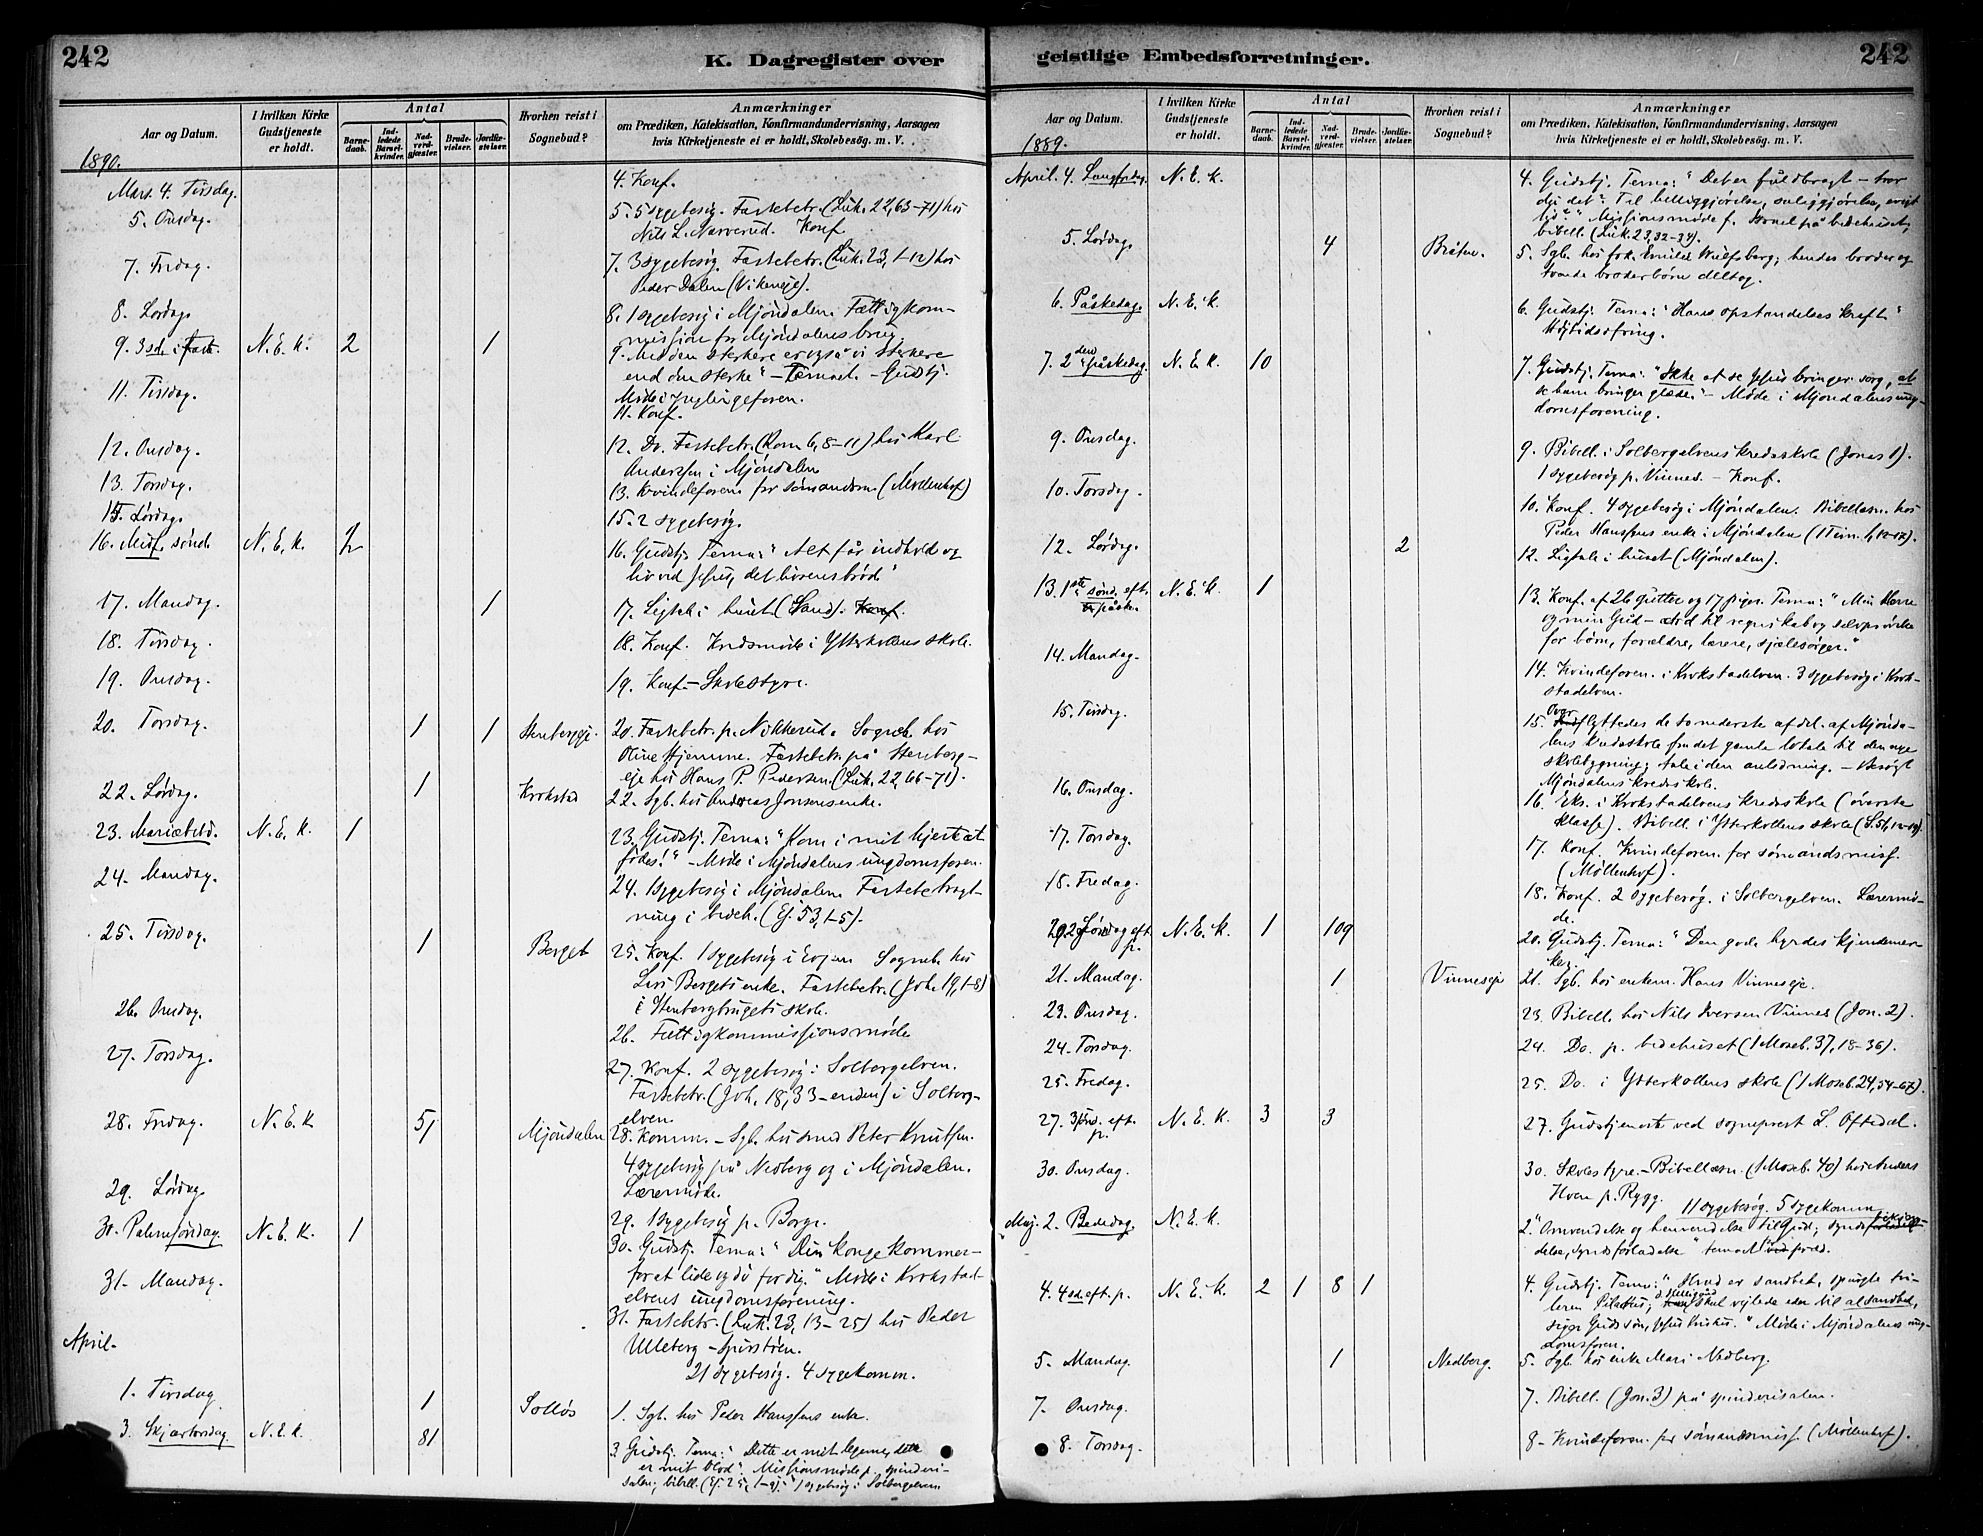 242
K. Dagregister over
Aar og Datum.
I hvilken Kirke Gudstjeneste er holdt.
Antal
Barnedaab.
Indledede Barselkvinder.
Nadverdgjæster.
Brudevielser.
Jordfæstelser.
Hvorhen reist i Sognebud?
Anmærkninger
om Prædiken, Katekisation, Konfirmandundervisning, Aarsagen
hvis Kirketjeneste ei er holdt, Skolebesög. m. V.
1890.
Mars. 4. Tirsdag. 4. Konf.
5. Onsdag. 5. 5 sygebesøg. Fastebetr. (Luk. 22,63–71) hos
Nils L. Narverud. Konf
7. Fredag. 7. 3 sygebesøg. Fastebetr. (Luk. 23, 1–12) hos
Peder Dalen (Vikeneje).
8. Lørdag 8. 1 sygebesøg i Mjøndalen. Fattigkom-
mission for Mjøndalens brug
9. 3 sd. i fast. N. E. K. 2 1 9. Med den sterkere er også vi sterkere
end den sterke" – Temaet. – Gudstj.
Møde i Ynglingeforen.
11. Tirsdag. 11. Konf.
12. Onsdag. 12. Do. Fastebetr. (Rom 6, 8–11) hos Karl
Anderssen i Mjøndalen
13. Torsdag. 13. Kvindeforen. for sømandsm. (Møllenhof)
15. Lørdag 15. 2 sygebesøg.
16. Midf. sønd. N. E. K. 2 16. Gudstj. Tema: "Alt får indhold og
liv ved Jesus, det livsens brød"
17. Mandag. 1 17. Ligtale i huset (Sand). Konf.
18. Tirsdag. 18. Konf. Kredsmøde i Ytterkollens skole.
19. Onsdag. 19. Konf. – Skolestyre.
20. Torsdag. 1 1 Stenbergeje. 20. Fastebetr. p. Nikkerud. Sogneb. hos
Oline Hjemme. Fastebetr. på Stenberg-
eje hos Hans P. Pedersen. (Luk. 22, 66–71).
22. Lørdag. 1 Krokstad 22. Sgb. hos Andreas Jonsens enke.
23. Mariæbebd. N. E. K. 1 23. Gudstj. Tema: "Kom i mit hjerte at
fødes!" – Møde i Mjøndalens ungdomsforen.
24. Mandag. 24. 1 sygebesøg i Mjøndalen. Fastebetragt-
ning i bedeh. (Ej. 53, 1–5).
25. Tirsdag. 1 Berget 25. Konf. 1 sygebesøg i Evjen. Sogneb. hos
Livi Bergets enke. Fastebetr. (Joh. 19, 1–8)
i Stenbergbrugets skole.
26. Onsdag. 26. Fattigkommissionsmøde
27. Torsdag. 27. Konf. 2 sygebesøg i Solbergelven.
Fastebetr. (Joh. 18, 33–enden) i Solberg-
elven.
28. Fredag. N. E. K 51 Mjøndalen 28. Komm. – Sgb. hos smed Peter Knutsen.
4 sygebesøg på Nedberg og i Mjøndalen.
Lærermøde.
29. Lørdag 29. 1 sygebesøg p. Borge.
30. Palmesøndag. N. E. K. 1 30. Gudstj. Tema: "Din konge kommer –
for at lide og dø for dig." Møde i Krokstad-
elvens ungdomsforening.
31. Mandag. 31. Fastebetr. (Luk. 23, 13–25) hos Peder
Ulleberg –
21 sygebesøg. 4 sygekomm.
April.
1. Tirsdag 1 Solløs 1. Sgb. hos Peder Hansens enke.
3. Skjærtorsdag. N. E. K. 81 3. Gudstj. Tema: "Dette er mit legeme, dette
er mit blod". Missionsmøde p. spinderi-
salen; bibell. (Ej. 25, 1–9). 1 sygebesøg i Solbergelven
geistlige Embedsforretninger.
242
Aar og Datum.
I hvilken Kirke Gudstjeneste er holdt.
Antal
Barnedaab.
Indledede Barselkvinder.
Nadverdgjæster.
Brudevielser.
Jordfæstelser.
Hvorhen reist i Sognebud?
Anmærkninger
om Prædiken, Katekisation, Konfirmandundervisning, Aarsagen
hvis Kirketjeneste ei er holdt, Skolebesög. m. V.
1889.
April. 4. Langfredag. N. E. K. 4. Gudstj. Tema: "Det er fuldbragt – tror
du det". Til helliggjørelse, saliggjørelse, evigt
Missionsmøde f. Israel på bedehuset;
bibell. (Luk. 23, 32–34).
5. Lørdag. 4 Bråten. 5. Sgb. hos frk. Emilie Wulfsberg; hendes broder og
broderbørn deltog.
6. Påskedag. N. E. K. 6. Gudstj. Tema: "Hans opstandelses kraft"
Højtidsofring.
7. 2den påskedag. N. E. K. 10 7. Gudstj. Tema: "Ikke at se Jesus bringer sorg, at
se ham bringer glæde." – Møde i Mjøndalens ung-
domsforening.
9. Onsdag. 9. Bibell. i Solbergelvens kredsskole (Jonas 1).
1 sygebesøg p. Vinnes. – Konf.
10. Torsdag. 10. Konf. 4 sygebesøg i Mjøndalen. Bibellæsn. hos
Peder Hansens enke i Mjøndalen (1 Tim. 1, 12–17).
12. Lørdag. 2 12. Ligtale i huset (Mjøndalen).
13. 1ste sønd. eft. påske. N. E. K. 1 13. Konf. af 26 gutter og 17 piger. Tema: "Min Herre
og min Gud – ord til regnskab og selvprøvelse
for børn, forældre, lærere, sjælesørger."
14. Mandag. 14. Kvindeforen. i Krokstadelven. 3 sygebesøg i Krok-
stadelven.
15. Tirsdag. 15. Overflyttedes de to nederste afdel. af Mjønda-
lens kredsskole fra det gamle lokale til den nye
skolebygning; tale i den anledning. – Besøgt
Mjøndalens kredsskole.
16. Onsdag. 16. Eks. i Krokstadelvens kredsskole (øverste
klasse). Bibell. i Ytterkollens skole
17. Torsdag. 17. Konf. Kvindeforen. for sømandsmiss.
(Møllenhof).
18. Fredag. 18. Konf. 2 sygebesøg. i Solbergelven. Lærermø-
de.
20. 2 søndag eft. p. N. E. K. 1 109 20. Gudstj. Tema: "Den gode hyrdes kjendemær-
ker.
21. Mandag. 1 Vinneseje 21. Sgb. hos enkem. Hans Vinneseje.
23. Onsdag. 23. Bibell. hos Nils Iversen Vinnes (Jon. 2).
24. Torsdag. 24. Do. p. bedehuset (1 Moseb. 37, 18–36).
25. Fredag. 25. Do. i Ytterkollens skole (1 Moseb. 24, 54–67).
27. 3 sønd. eft. p. N. E. K. 3 3 27. Gudstjeneste ved sogneprest L. Oftedal.
30. Onsdag. 30. Skolestyre. – Bibellæsn. (1 Moseb. 40) hos Anders
Horn p. Rygg.
11 sygebesøg. 5 sygekomm.
Maj. 2. Bededag. N. E. K. 2. "Omvendelse og henvendelse til Gud;
syndsforladelse" temaet
4. 4 sd. eft. p. N. E. K. 2 1 8 1 4. Gudstj. Tema: "Hvad er sandhed, spurgte tvi-
leren Pilatus; skal vejlede eder til al sandhed,
siger Guds søn, Jesus Kristus." Møde i Mjøndalens ung-
domsforen.
5. Mandag. 1 Nedberg. 5. Sgb. hos enke Mari Nedberg.
7. Onsdag. 7. Bibell. (Jon. 3) på spinderisalen.
8. Torsdag. 8. Kvindeforen. for sømandsmiss. (Møllenhof).